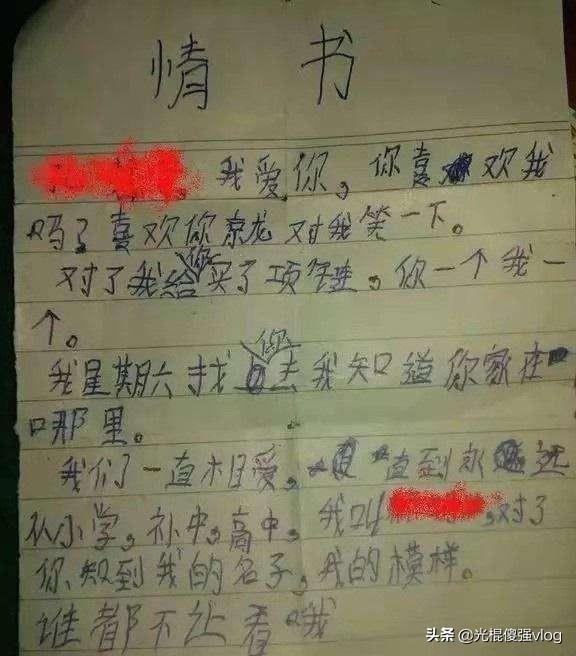 情书
我爱你，你喜欢我
吗？喜欢你就对我笑一下。
对了我给你买了项链，你一个我一
个。
我星期六找你去我知道你家在
哪里。
我们一直相爱，一直到永远
从小学，补中，高中，我叫，对了
你知到我的名子，我的模样。
谁都不让看哦
头条 @光棍傻强vlog